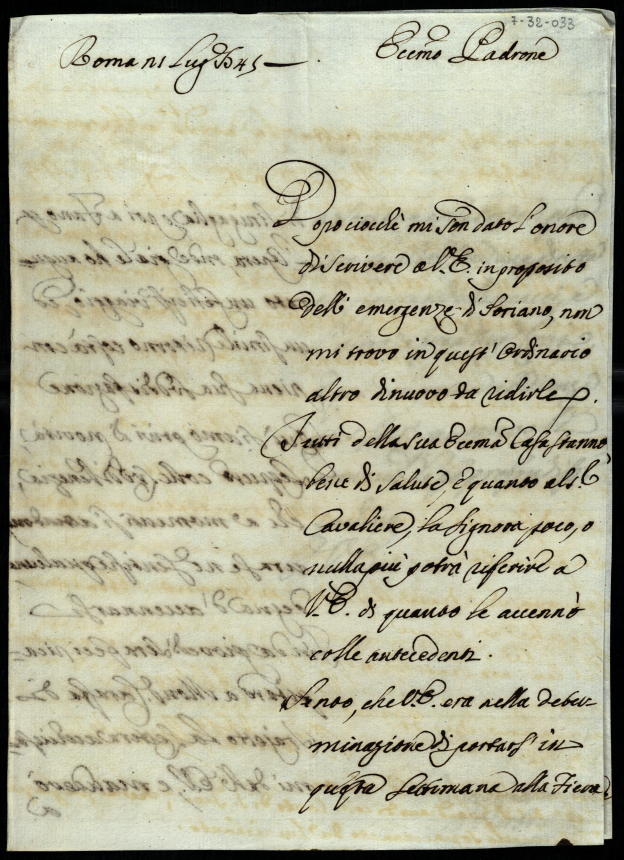 7-32-033
Roma ni Lugº 1545
Eccmo Padrone
Dopociocchè mi son dato l'onore
di scrivere a V.E. in proposito
dell'emergenze di Soriano, non
mi trovo in quest'Ordinario
altro di nuovo da ridirle.
Tutti della sua Eccma Casa stanno
bene di salute, e quanto al S.r
Cavaliere, la Signora poco, o
nulla più potrà riferire a
V.E. di quanto le accennò
colle antecedenti.
Sento, che V.E. era nella deter-
minazione di portarsi in
questa Settimana alla Fiera